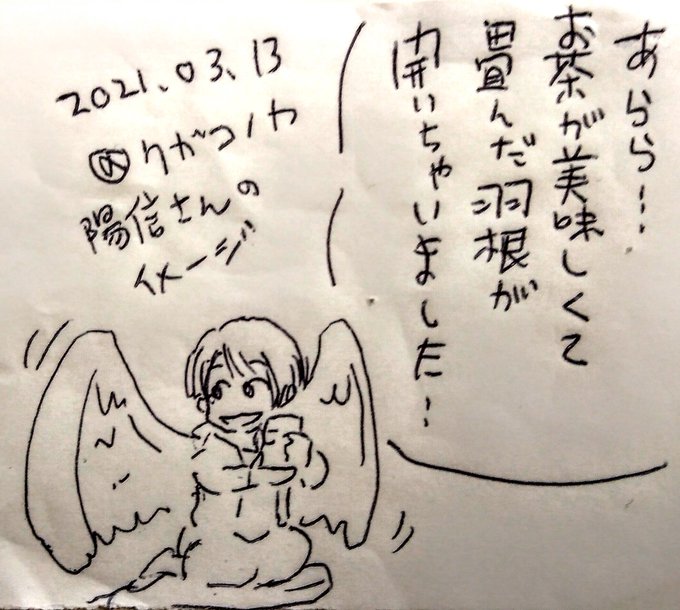 あらら…
お茶が美味しくて
畳んだ羽根が
開いちゃいました…
2021.03.13
陽信さんの
イメージ